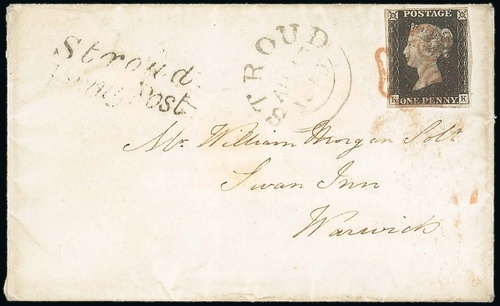 Stroud
Penny Post
STROUD
POSTAGE
K K
ONE PENNY
Mr. William Morgan Solr.
Swan Inn
Warwick